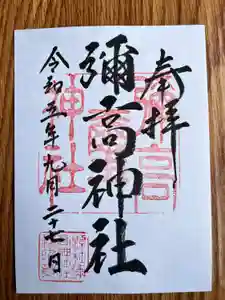 奉拝
彌高神社
令和五年九月二十七日